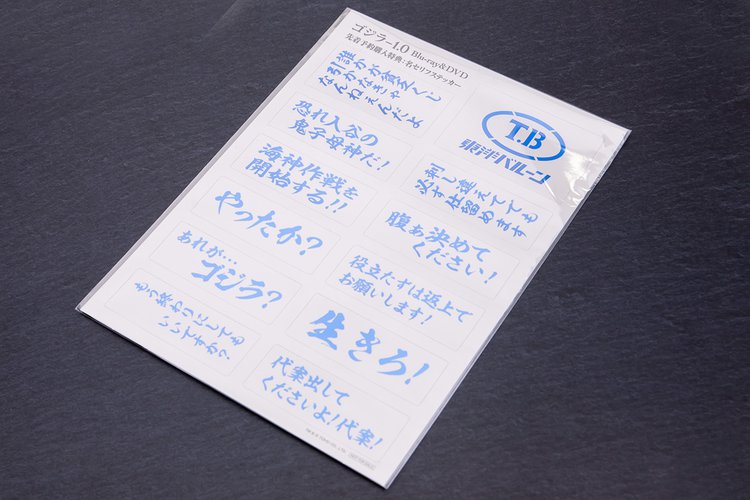 ゴジラ-1.0 Blu-ray&DVD
先着予約購入特典:名セリフステッカー
誰かが貧乏くじ
引かなきゃ
なんねぇんだよ
恐れ入谷の
鬼子母神だ!
海神作戦を
開始する!!
やったか?
あれが…
ゴジラ?
もう終わりにしても
いいですか?
T.B
東洋バルーン
刺し違えてでも
必ず仕留めます
腹ぁ決めて
ください!
役立たずは返上で
お願いします!
生きろ!
代案出して
くださいよ!代案!